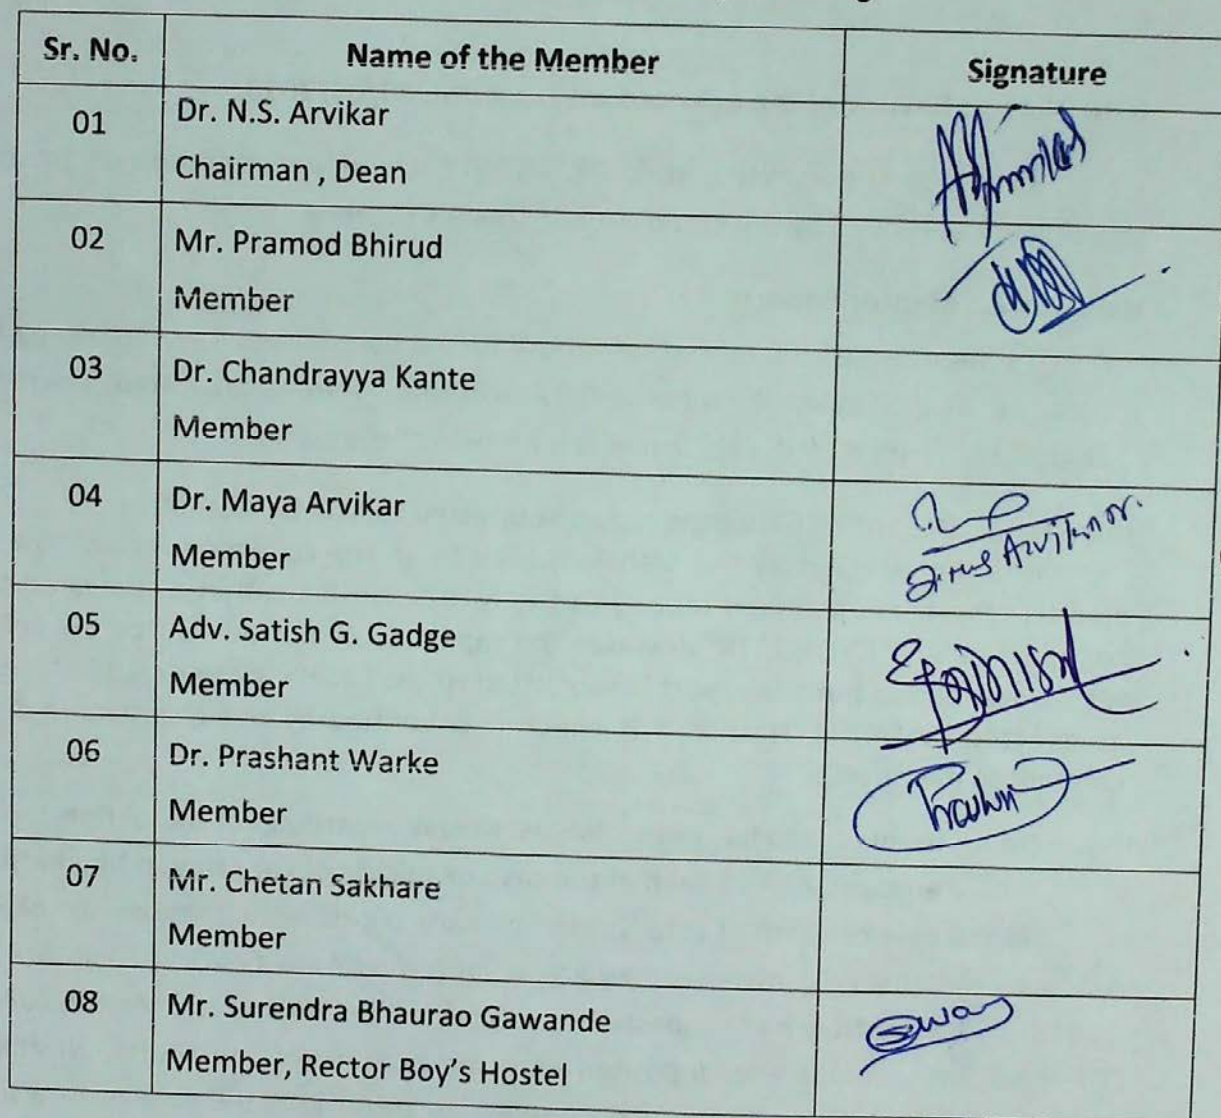 Sr. No. Name of the Member Signature
01 Dr. N.S. Arvikar
Chairman , Dean
02 Mr. Pramod Bhirud
Member
03 Dr. Chandrayya Kante
Member
04 Dr. Maya Arvikar
Member
05 Adv. Satish G. Gadge
Member
06 Dr. Prashant Warke
Member
07 Mr. Chetan Sakhare
Member
08 Mr. Surendra Bhaurao Gawande
Member, Rector Boy's Hostel